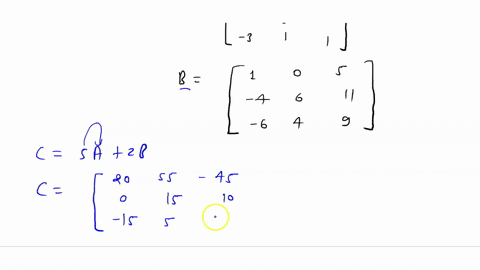 -3 1 1
B = [ 1 0 5
-4 6 11
-6 4 9 ]
C = 5A + 2B
C = [ 20 55 -45
0 15 10
-15 5